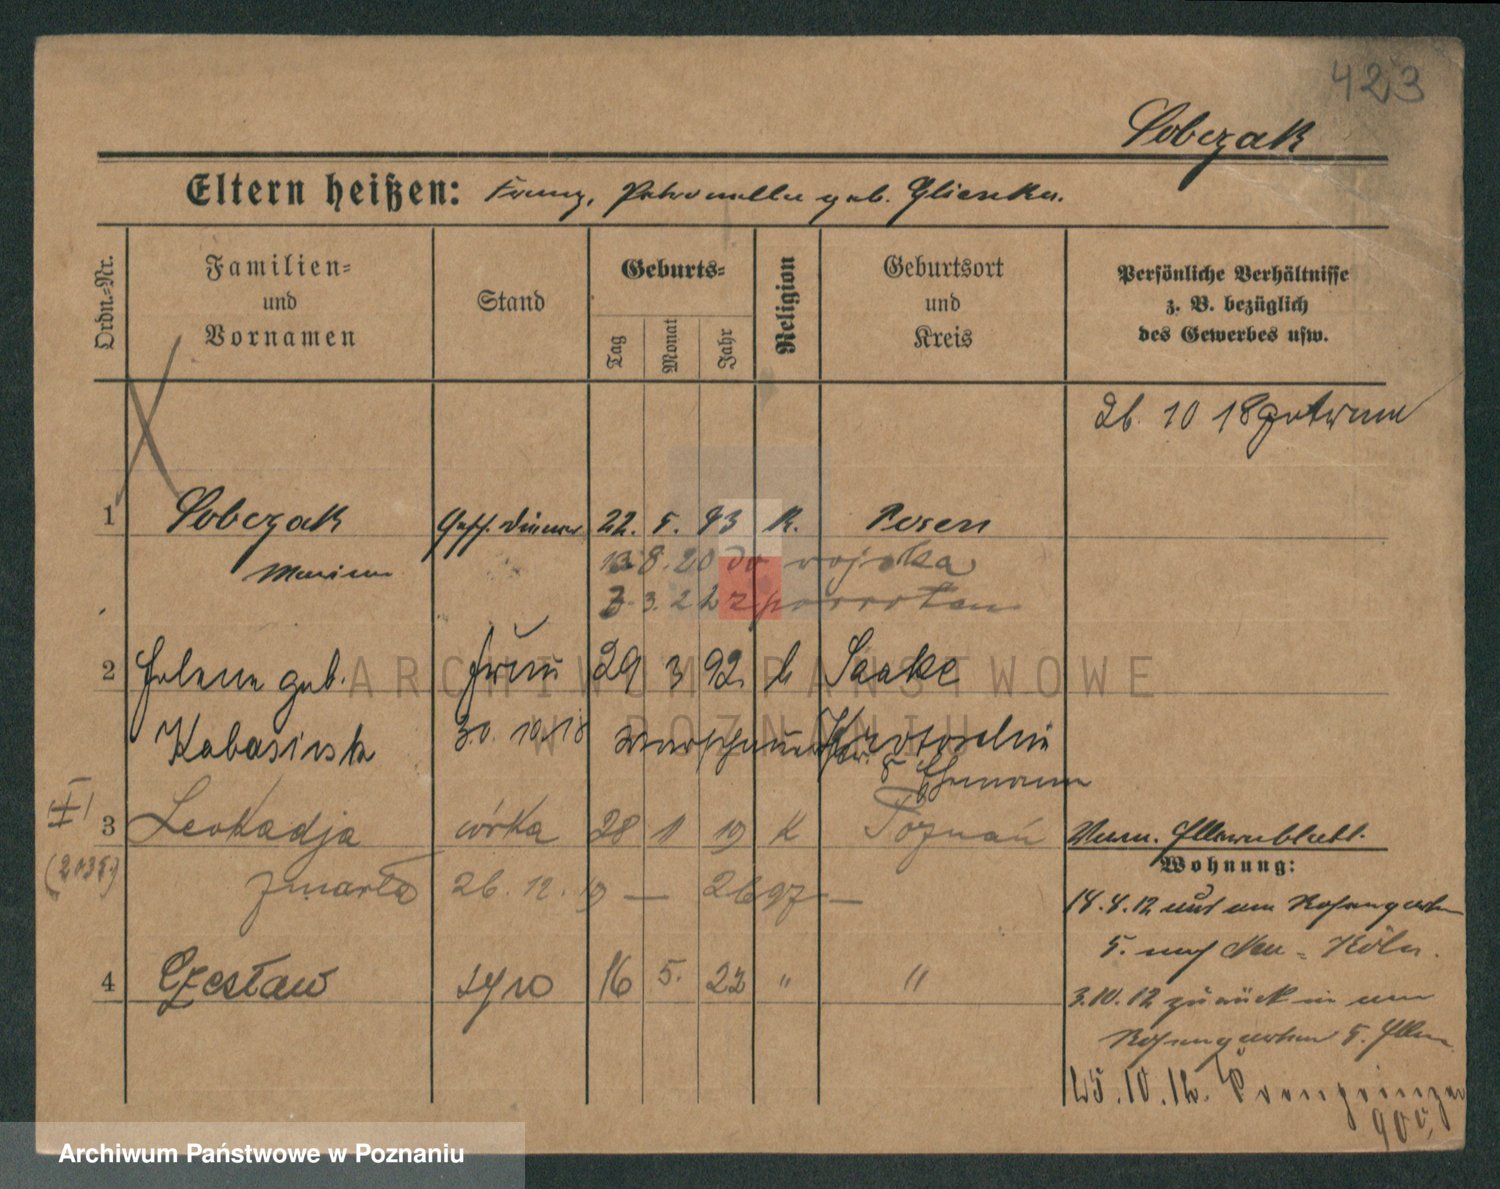 423
Sobczak
Eltern heißen: Franz, Petronella geb. Glienska.
Ordn.=Nr.
Familien=
und
Vornamen
Stand
Geburts=
Tag
Monat
Jahr
Religion
Geburtsort
und
Kreis
Persönliche Verhältnisse
z. B. bezüglich
des Gewerbes usw.
26. 10 18 getraut
1 Sobczak 22. 5. 93 K. Posen
Marian
13.8.20 do wojska
3. 22 z powrotem
2 Helene geb. Frau 29 3 92. k
Kabasinska 30. 10. 18 Krotoschin
Ehemann
I
3 Leokadja córka 28 1 19 K Poznań
zmarła 26. 12. 19 — 2697 —
Elternblatt.
Wohnung:
5. nach Neu-Köln.
4 Czesław syn 16 5. 22 " "
3.10.12 zurück in
5. Eltern
25.10.12. Kronprinzen
90
ARCHIWUM PAŃSTWOWE
W POZNANIU
Archiwum Państwowe w Poznaniu